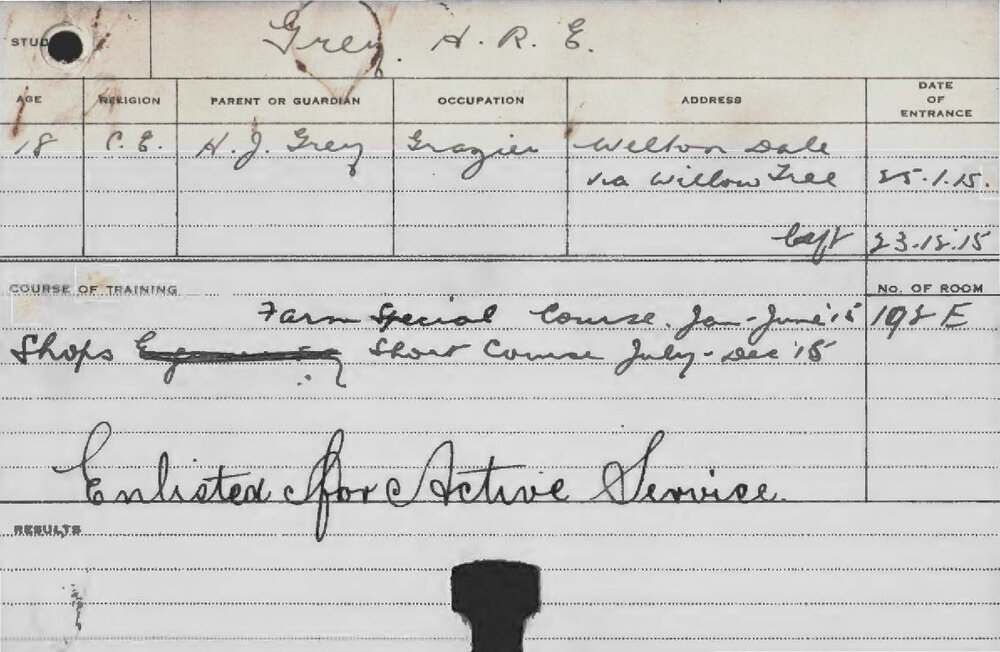 STUD Grey. H. R. E.
AGE RELIGION PARENT OR GUARDIAN OCCUPATION ADDRESS DATE OF ENTRANCE
18 C.E. H. J. Grey Grazier Welton Dale
via Willow Tree 25.1.15.
left 23.12.15
COURSE OF TRAINING No. OF ROOM
Farm Special Course. Jan-June '15 198 E
Shops Short Course July-Dec '15
Enlisted for Active Service.
RESULTS